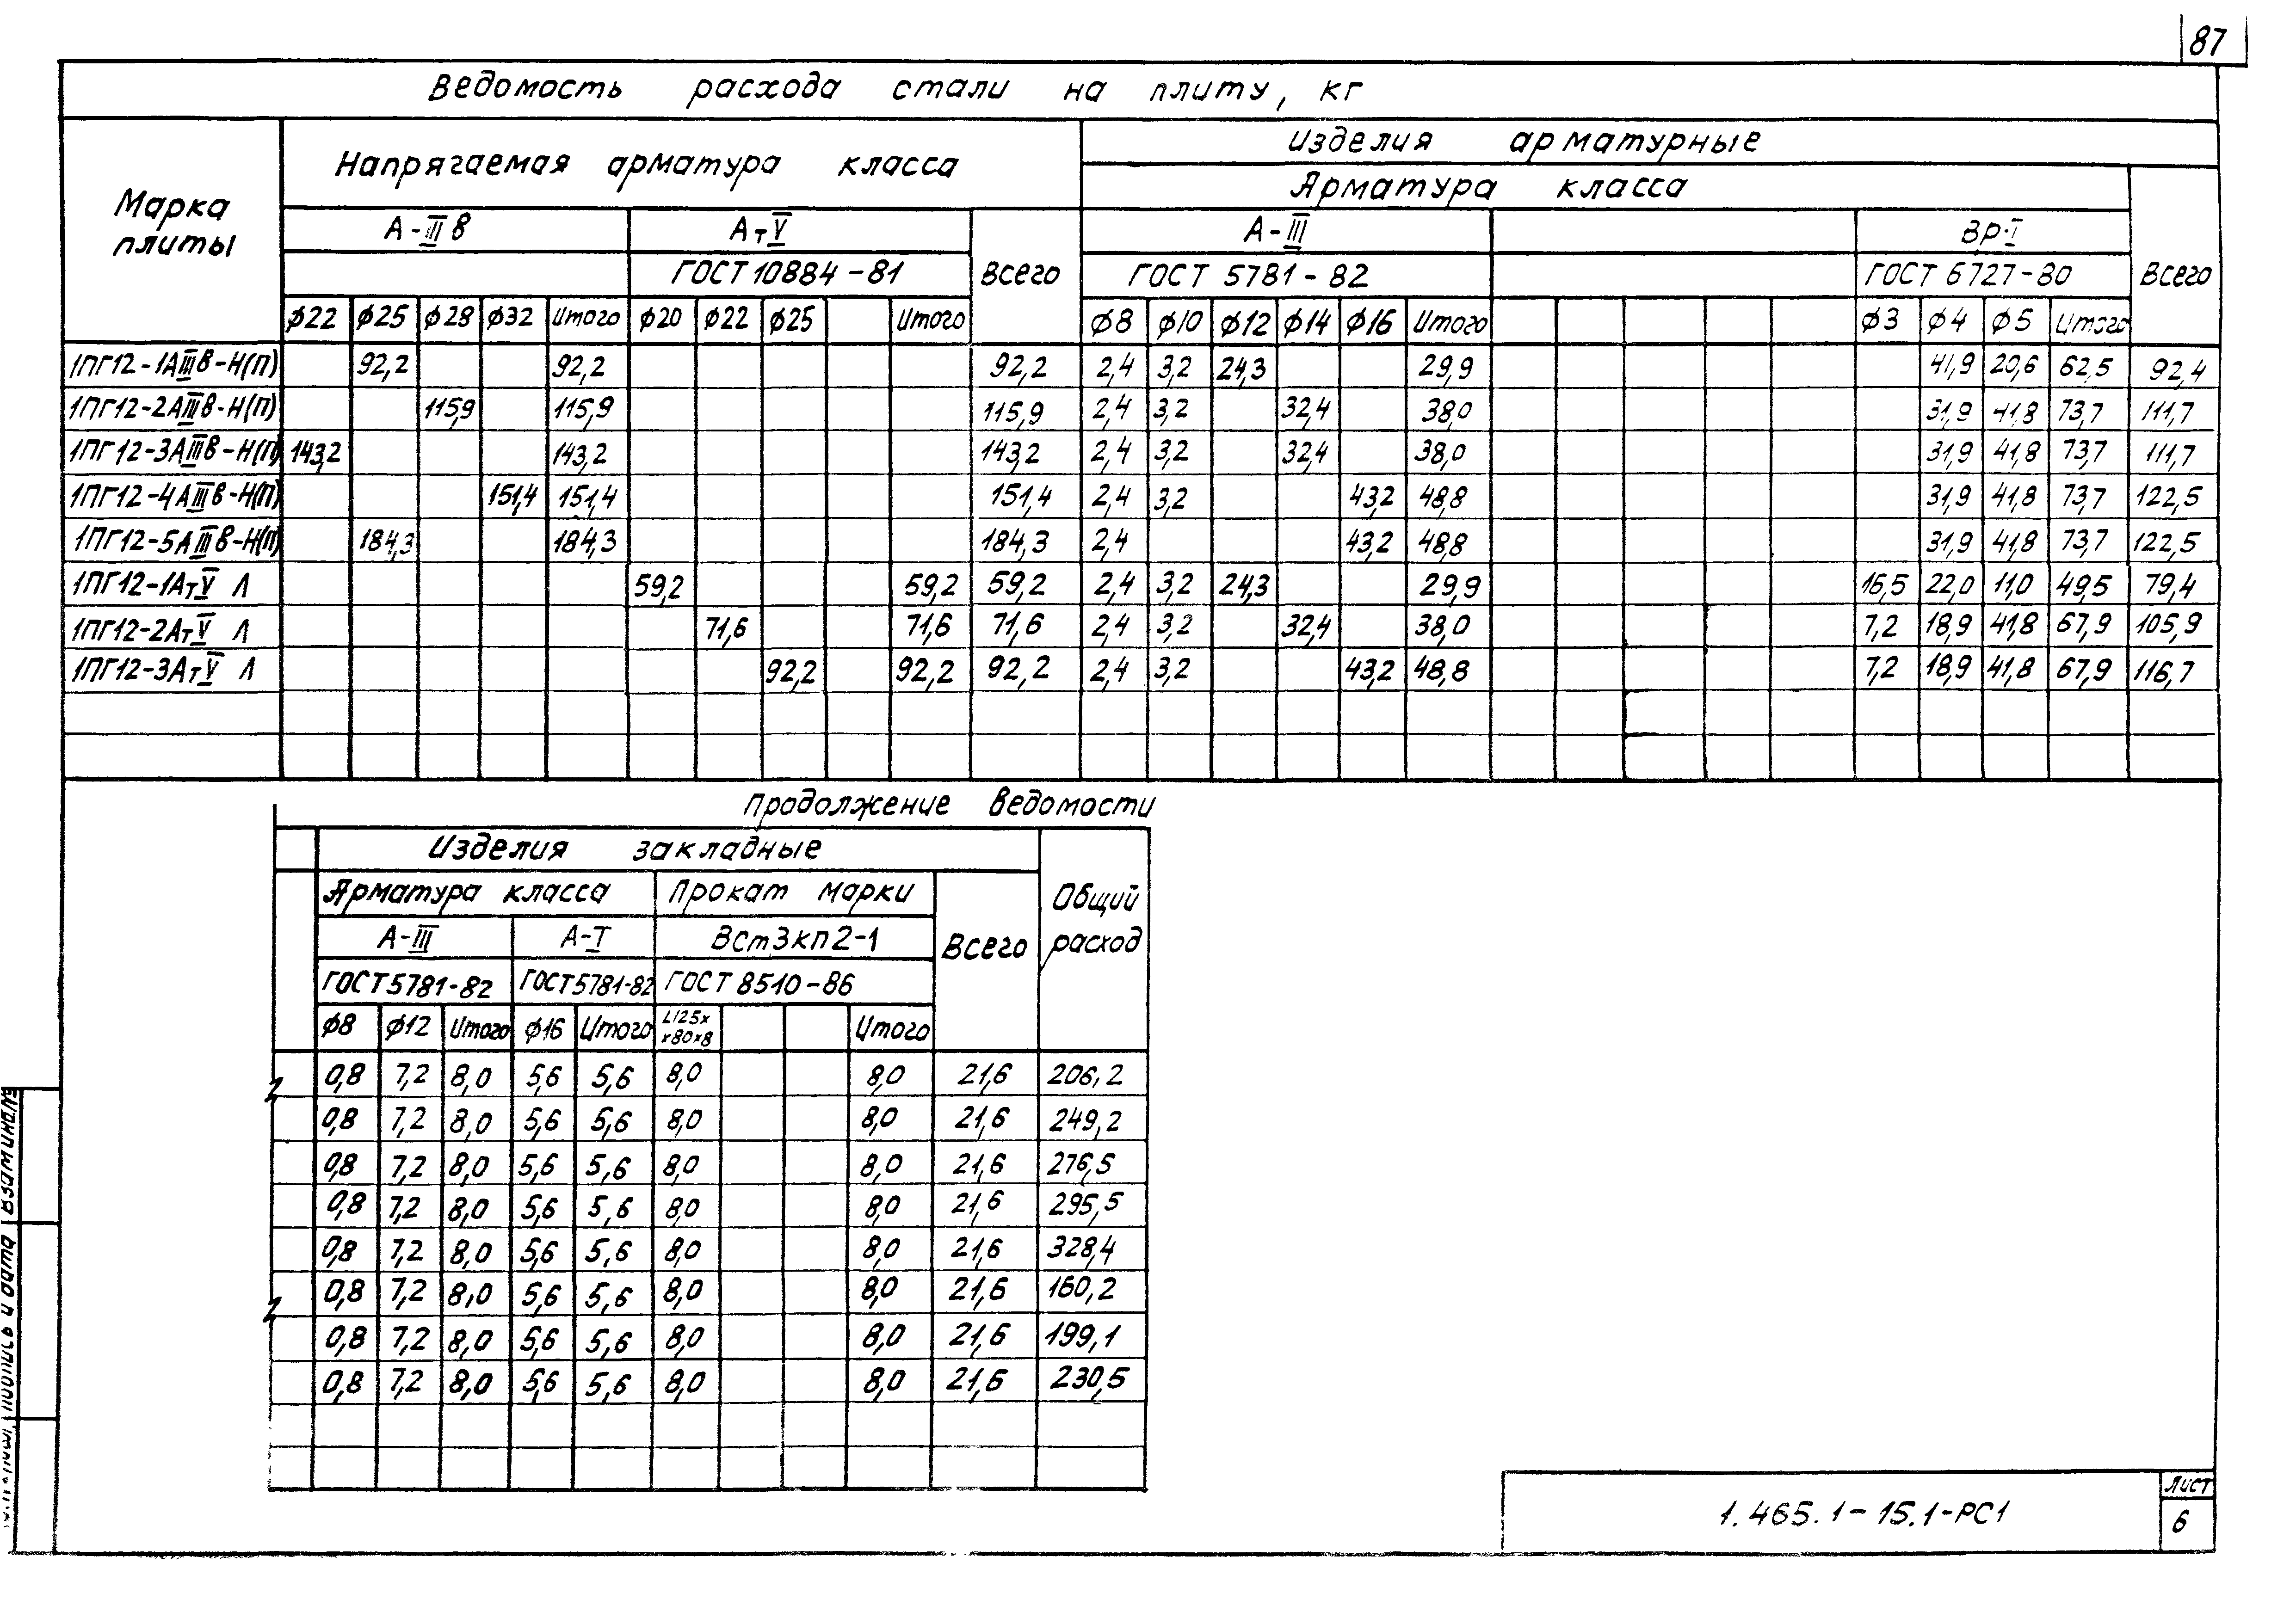 87
Ведомость расхода стали на плиту, кг
Марка плиты
Напрягаемая арматура класса
Изделия арматурные
Арматура класса
А-III в АтV Всего А-III ВР-I Всего
ГОСТ 10884-81 ГОСТ 5781-82 ГОСТ 6727-80
ф22 ф25 ф28 ф32 Итого ф20 ф22 ф25 Итого ф8 ф10 ф12 ф14 ф16 Итого ф3 ф4 ф5 Итого
1ПГ12-1АIIIв-Н(П) 92,2 92,2 92,2 2,4 3,2 24,3 29,9 41,9 20,6 62,5 92,4
1ПГ12-2АIIIв-Н(П) 115,9 115,9 115,9 2,4 3,2 32,4 38,0 31,9 41,8 73,7 111,7
1ПГ12-3АIIIв-Н(П) 143,2 143,2 143,2 2,4 3,2 32,4 38,0 31,9 41,8 73,7 111,7
1ПГ12-4АIIIв-Н(П) 151,4 151,4 151,4 2,4 3,2 43,2 48,8 31,9 41,8 73,7 122,5
1ПГ12-5АIIIв-Н(П) 184,3 184,3 184,3 2,4 43,2 48,8 31,9 41,8 73,7 122,5
1ПГ12-1АтV Л 59,2 59,2 59,2 2,4 3,2 24,3 29,9 16,5 22,0 11,0 49,5 79,4
1ПГ12-2АтV Л 71,6 71,6 71,6 2,4 3,2 32,4 38,0 7,2 18,9 41,8 67,9 105,9
1ПГ12-3АтV Л 92,2 92,2 92,2 2,4 3,2 43,2 48,8 7,2 18,9 41,8 67,9 116,7
Продолжение ведомости
Изделия закладные
Арматура класса Прокат марки Общий расход
А-III А-I ВСт3кп2-1 Всего
ГОСТ 5781-82 ГОСТ 5781-82 ГОСТ 8510-86
ф8 ф12 Итого ф16 Итого L125х х80х8 Итого
0,8 7,2 8,0 5,6 5,6 8,0 8,0 21,6 206,2
0,8 7,2 8,0 5,6 5,6 8,0 8,0 21,6 249,2
0,8 7,2 8,0 5,6 5,6 8,0 8,0 21,6 276,5
0,8 7,2 8,0 5,6 5,6 8,0 8,0 21,6 295,5
0,8 7,2 8,0 5,6 5,6 8,0 8,0 21,6 328,4
0,8 7,2 8,0 5,6 5,6 8,0 8,0 21,6 160,2
0,8 7,2 8,0 5,6 5,6 8,0 8,0 21,6 199,1
0,8 7,2 8,0 5,6 5,6 8,0 8,0 21,6 230,5
1.465.1-15.1-РС1
Лист
6